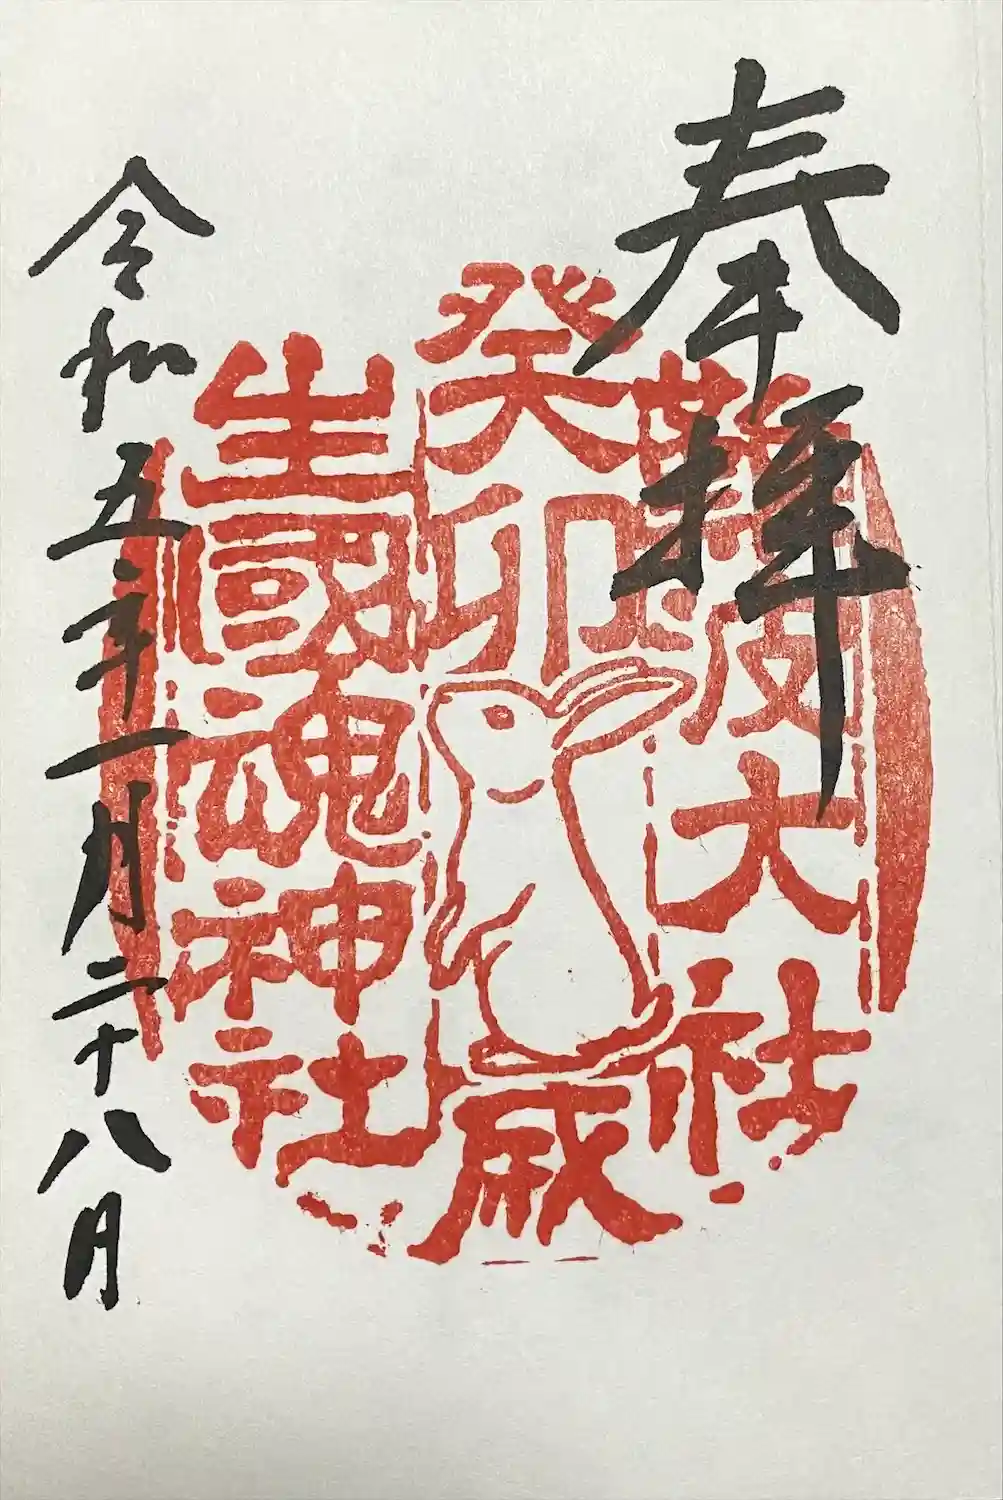 奉拝
難波大社
癸卯歳
生國魂神社
令和五年一月二十八月